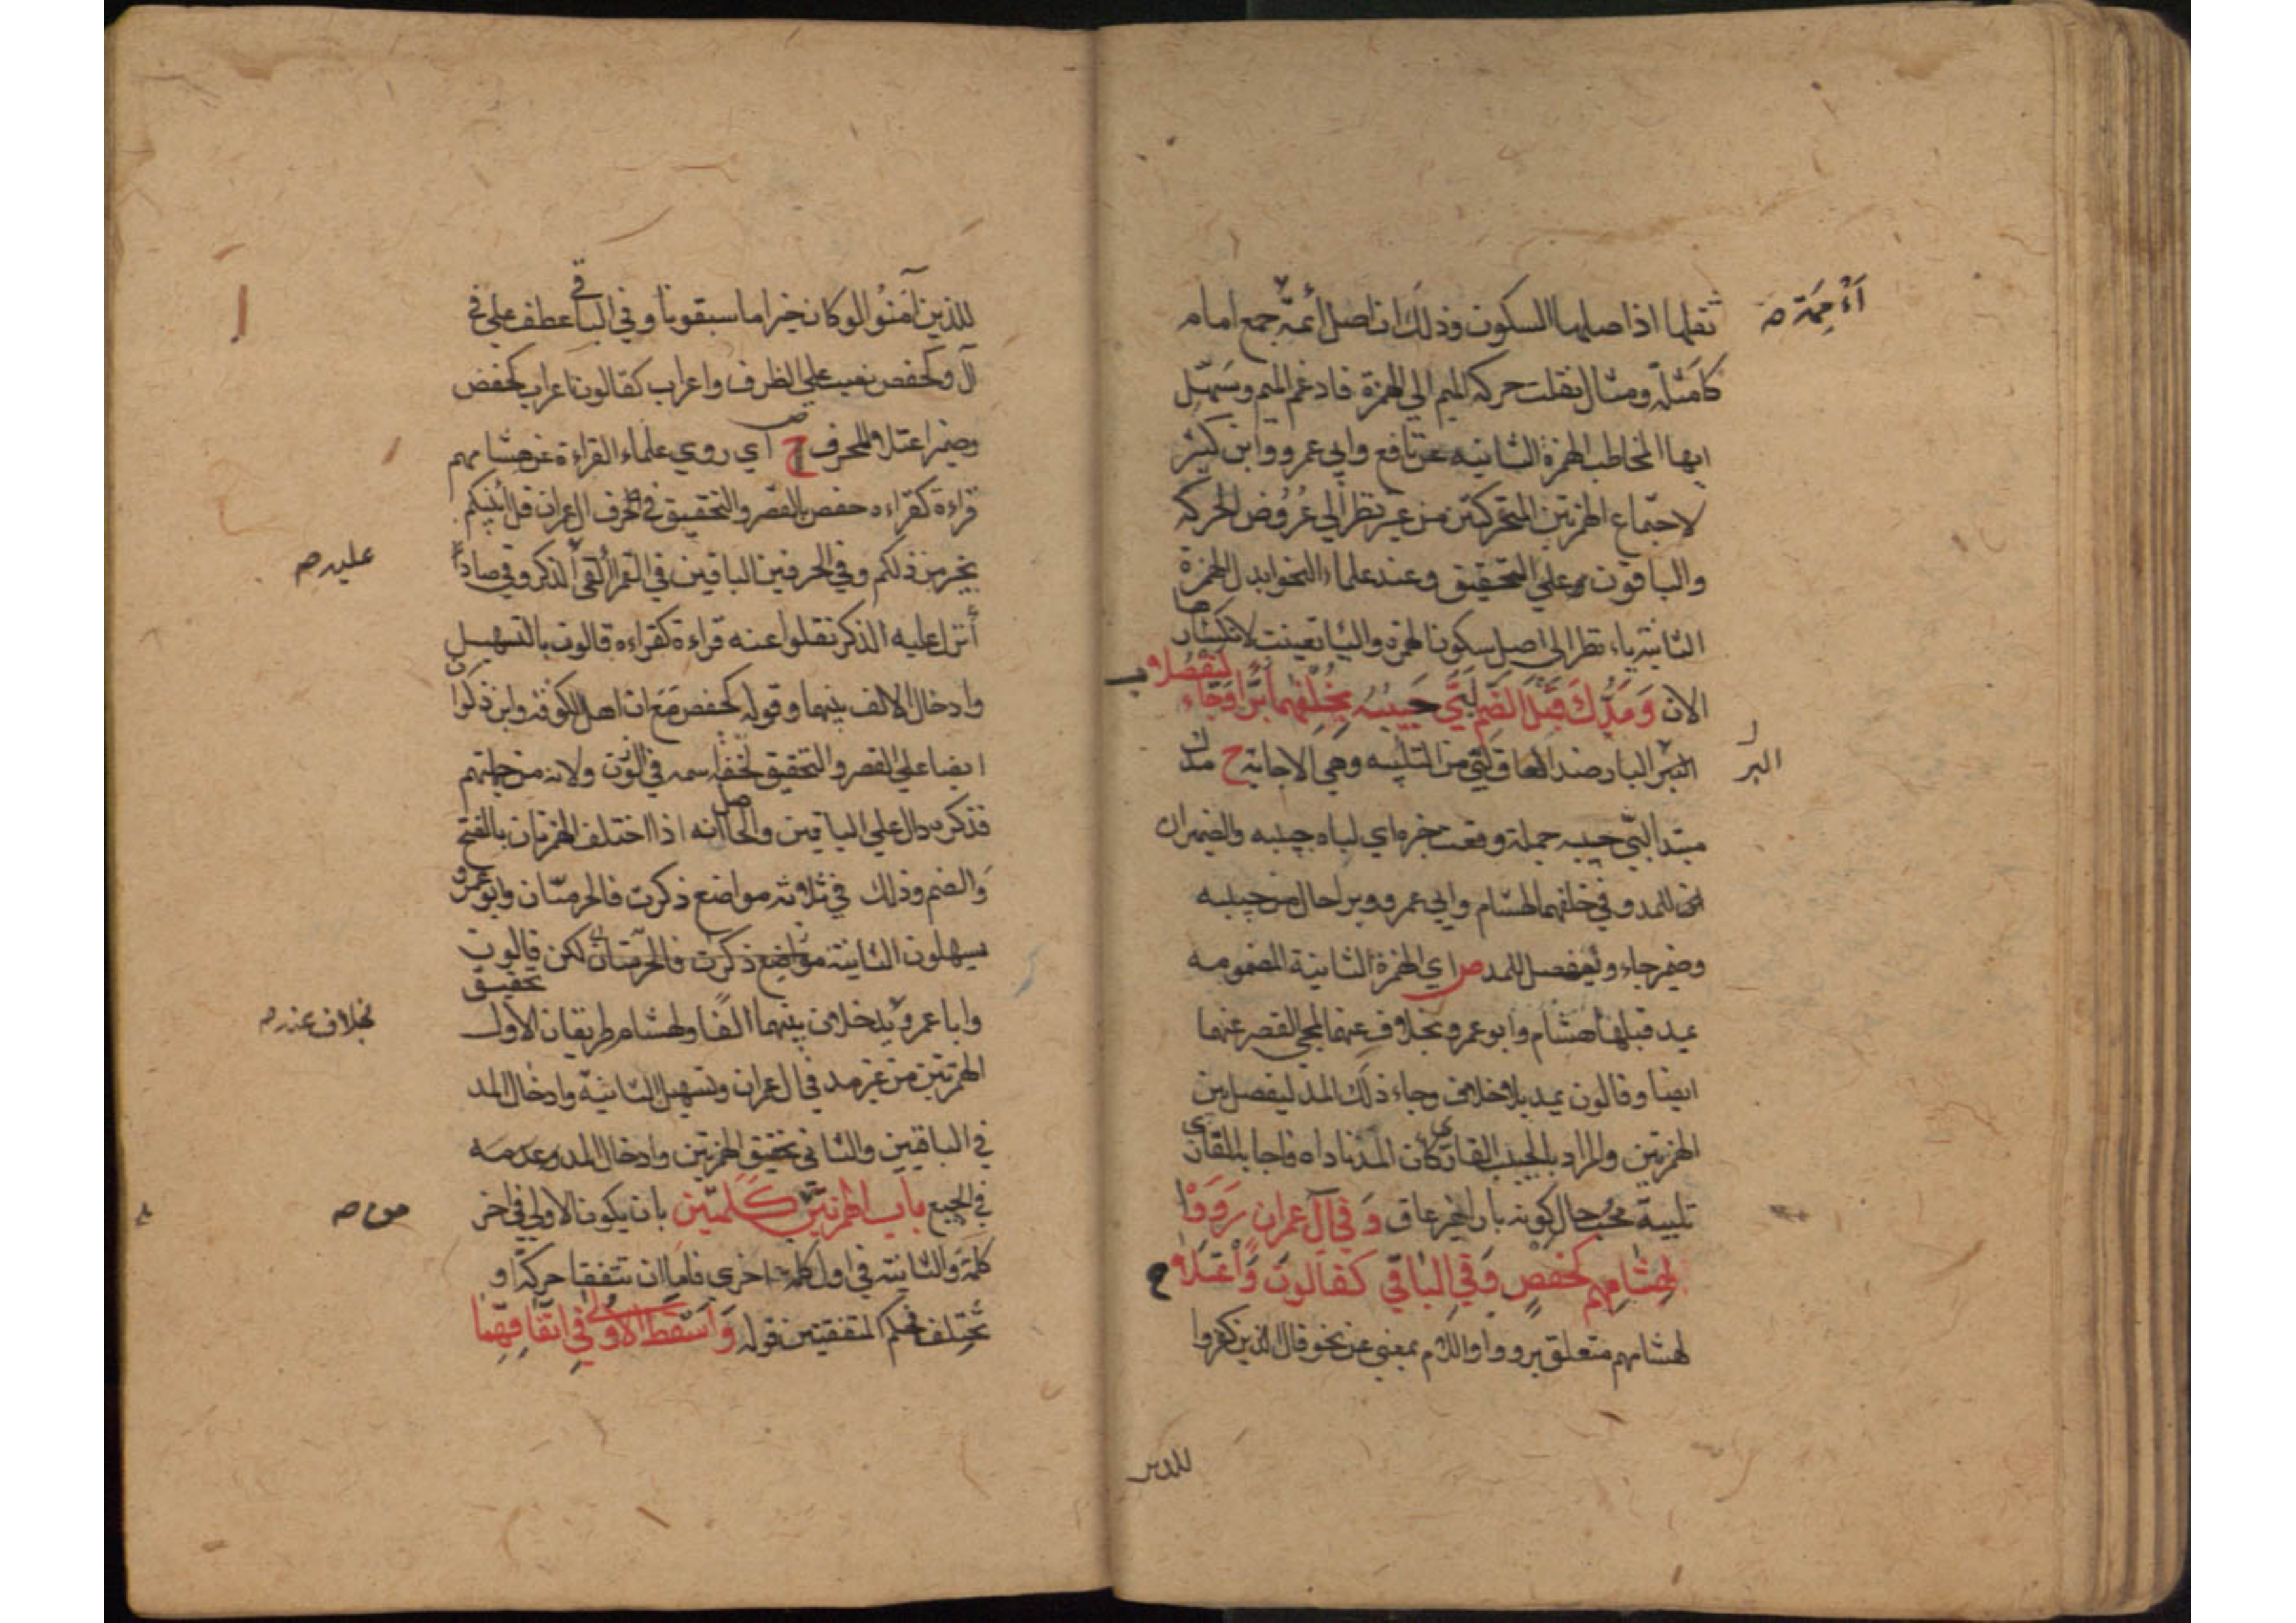 ثقلها اذ اصلها السكون وذلك ان اصل أئمّة جمع امام
أَءْمِمَة صح
كامثلة ومثال نقلت حركة الميم الي الهمزة فادغم الميم وسَهّل
ايها المخاطب الهمزة الثانية عن نافع وابي عمرو وابن كثير
لاجتماع الهمزتين المتحركتين من غير نظر الي عُرُوض الحركة
والباقون علي التحقيق وعند علماء النحو ابدل الهمزة
الثانية ياء نظرا الي اصل سكون الهمزة واليا تعينت لانكسار
الان وَمَدُّكَ قَبْلَ الضَّمِّ لَبَّى حَبِيبُهُ بِخُلْفِهِمَا بَرًّا وَجَاءَ لِيَفْصِلَا
البَرّ البار ضد العاق لبّي من التلبية وهي الاجابة ح مدك
البر
مبتدا لبّي حبيبه جملة وقعت خبره اي لباه حبيبه والضميران
للمد وفي خلفهما لهشام وابي عمرو وبرا حال من حبيبه
وضمير جاء وليفصل للمد ص اي الهمزة الثانية المضمومة
يمد قبلها هشام وابو عمرو بخلاف عنهما لمجي القصر عنهما
ايضا وقالون يمد بلا خلاف وجاء ذلك المد ليفصل بين
الهمزتين والمراد بالحبيب القاري كأن المد ناداه فاجابه القاري
تلبية محب حال كونه بارا غير عاق وَفِي آلِ عِمْرَانَ رَوَوْا
لِهِشَامِهِمْ كَحَفْصٍ وَفِي الْبَاقِي كَقَالُونَ وَاعْتَلَا ح
لهشامهم متعلق برووا واللام بمعني عن نحو قال الذين كفروا
للذين
للذين آمَنُوا لو كان خيرا ما سبقونا وفي الباقي عطف علي في
آل وكحفص نصب علي الظرف واعراب كقالون اعراب كحفص
وضمير اعتلا للحرف ح اي روي علماء القراءة عن هشامهم
قراءة كقراءة حفص بالقصر والتحقيق في حرف ال عمران قل أئنبكم
بخير من ذلكم وفي الحرفين الباقين في القمر أألقي الذكر وفي صاد
عليه صح
أنزل عليه الذكر نقلوا عنه قراءة كقراءة قالون بالتسهيل
وادخال الالف بينهما وقوله كحفص مَعَ ان اهل الكوفة وابن ذكوان
ايضا علي القصر والتحقيق لخفة اسمه في الوزن ولانه من جملتهم
فذكره دال علي الباقين والحاصل انه اذا اختلف الهمزتان بالفتح
وَالضم وذلك في ثلاثة مواضع ذكرت فالحرميّان وابو عمرو
يسهلون الثانية مواضع ذكرت فالحرميّان لكن قالون
وابا عمرو يدخلان بينهما الفًا ولهشام طريقان الاول تحقيق
بخلاف عنه صح
الهمزتين من غير مد في ال عمران وتسهيل الثانية وادخال المد
في الباقيين والثاني تحقيق الهمزتين وادخال المد وعدمه
في الجميع بَاب الهمزتين من كَلِمَتَيْن بان يكون الاولي في اخر
من صح
كلمة والثانية في اول كلمة اخري فاما ان تتفقا حركة او
تختلفا فحكم المتفقين قوله وَاَسْقَطَ الْأُولَى فِي اتِّفَاقِهِمَا